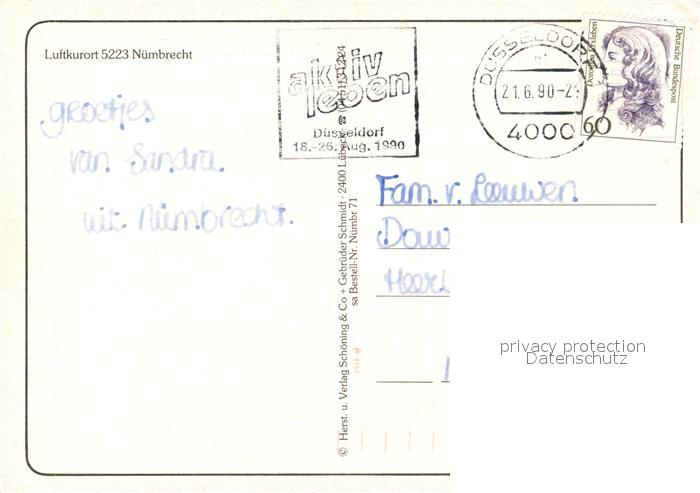 Luftkurort 5223 Nümbrecht
groetjes
van Sandra
uit Nümbrecht.
aktiv
leben
Düsseldorf
18.-26. Aug. 1990
DÜSSELDORF
21.6.90-21
4000
Deutsche Bundespost
60
© Herst. u. Verlag Schöning & Co + Gebrüder Schmidt · 2400 Lübeck
sa Bestell-Nr. Nümbr 71
Fam. v. Leeuwen
privacy protection
Datenschutz